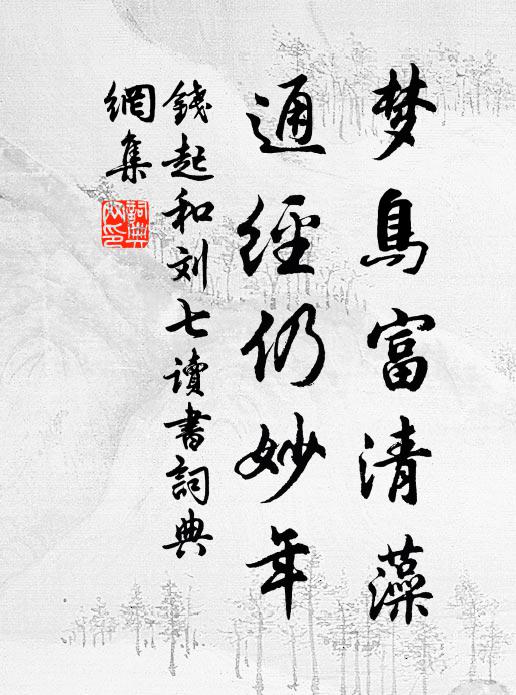 梦鳥富清藻
通經仍妙年
錢起和刘七讀書詞典
網集
詞典
网印